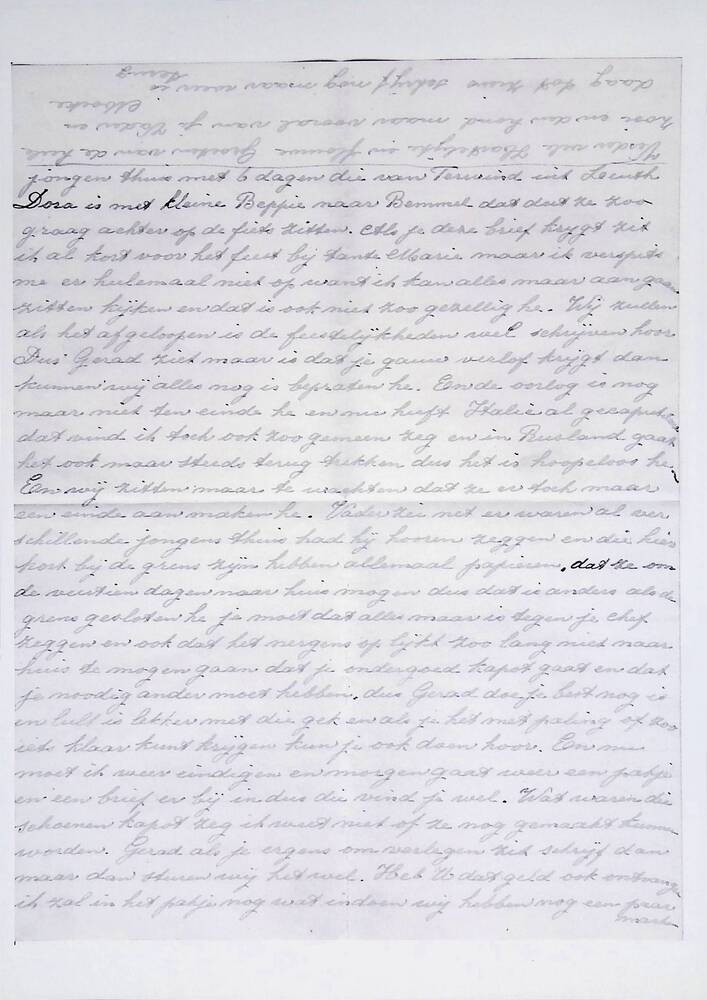 jongen thuis met 6 dagen die van Terwind uit Leuth
Dora is met kleine Beppie naar Bemmel dat doet ze zoo
graag achter op de fiets zitten. Als je deze brief krijgt zit
ik al kort voor het feest bij tante Marie maar ik verspits
me er heelemaal niet op want ik kan alles maar aan gaan
zitten kijken en dat is ook niet zoo gezellig he. Wij zullen
als het afgeloopen is de feestelijkheden wel schrijven hoor
Dus Gerad ziet maar is dat je gauw verlof krijgt dan
kunnen wij alles nog is bepraten he. En de oorlog is nog
maar niet ten einde he en nu heeft Italie al
dat vind ik toch ook zoo gemeen zeg en in Rusland gaat
het ook maar steeds terug trekken dus het is hoopeloos he
En wij zitten maar te wachten dat ze er toch maar
een einde aan maken he. Vader zei net er waren al ver
schillende jongens thuis had hij hooren zeggen en die hier
kort bij de grens zijn hebben allemaal papieren, dat ze om
de veertien dagen naar huis mogen dus dat is anders als de
grens gesloten he je moet dat alles maar is tegen je chef
zeggen en ook dat het nergens op lijkt zoo lang niet naar
huis te mogen gaan dat je ondergoed kapot gaat en dat
je noodig ander moet hebben. dus Gerad doe je best nog is
en lult is lekker met die gek en als je het met paling of zoo
iets klaar kunt krijgen kun je ook doen hoor. En nu
moet ik weer eindigen en morgen gaat weer een pakje
en een brief er bij in dus die vind je wel. Wat waren die
schoenen kapot zeg ik weet niet of ze nog gemaakt kunnen
worden. Gerad als je ergens om verlegen zit schrijf dan
maar dan sturen wij het wel. Heb U dat geld ook ontvangen
ik zal in het pakje nog wat indoen wij hebben nog een paar
mark
Verder vele Hartelijke en flinke Groeten van de heele
en den hond maar vooral van je Vader en
Moeke
daag tot ziens schrijf nog maar weer is
terug